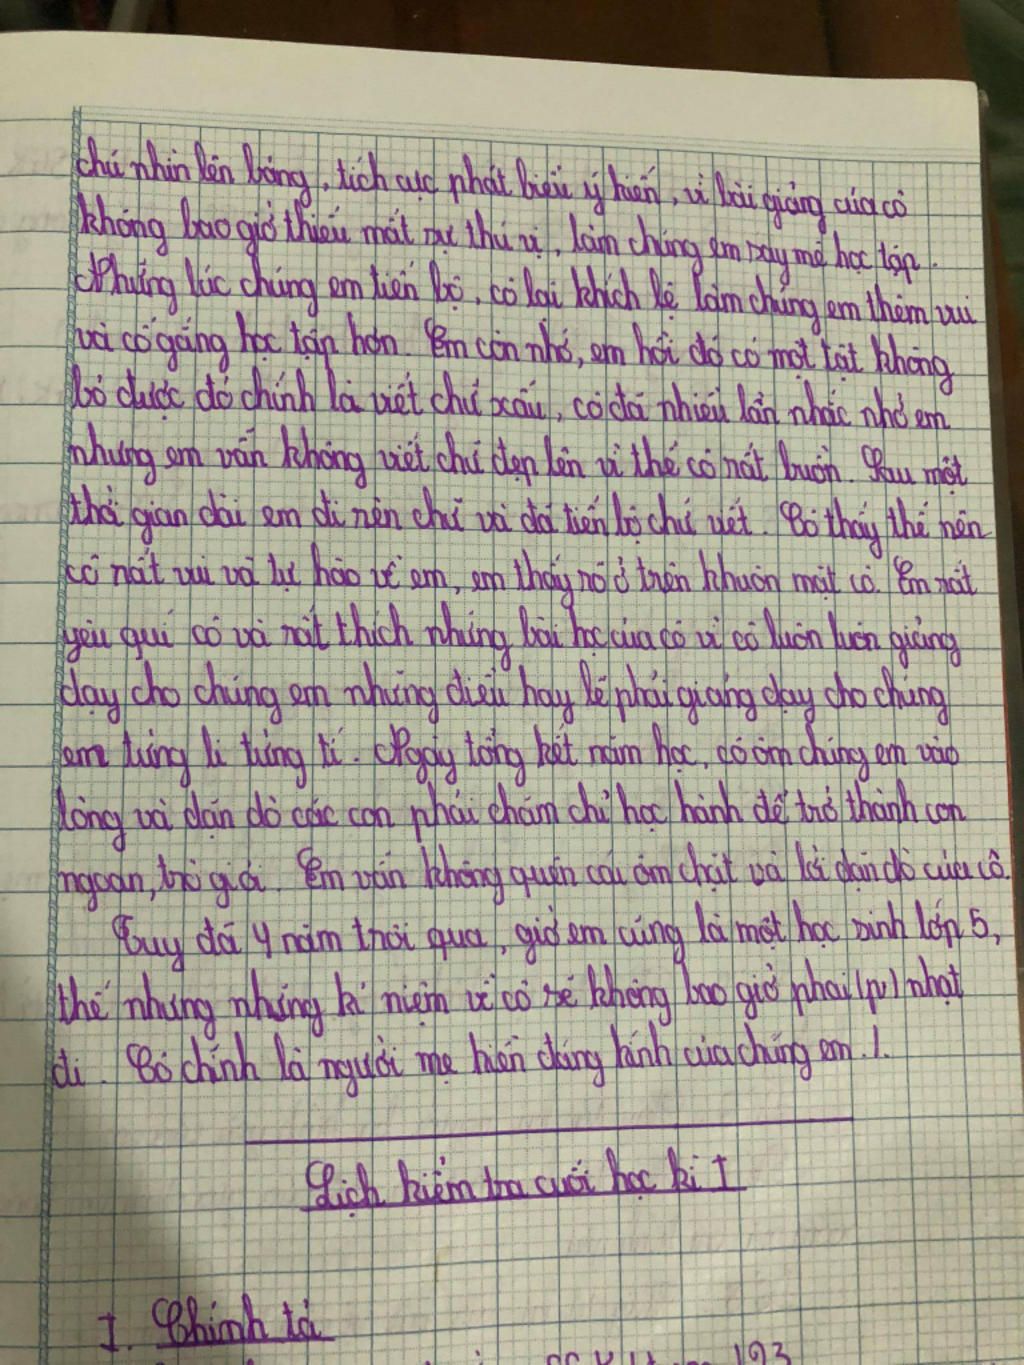 chú nhìn lên bảng, tích cực phát biểu ý kiến, vì bài giảng của cô
không bao giờ thiếu mất sự thú vị, làm chúng em say mê học tập.
Những lúc chúng em tiến bộ, cô lại khích lệ làm chúng em thêm vui
và cố gắng học tập hơn. Em còn nhớ, em hồi đó có một tật không
bỏ được đó chính là viết chữ xấu, cô đã nhiều lần nhắc nhở em
nhưng em vẫn không viết chữ đẹp lên vì thế cô rất buồn. Sau một
thời gian dài em đi rèn chữ và đã tiến bộ chữ viết. Cô thấy thế nên
cô rất vui và tự hào về em, em thấy rõ ở trên khuôn mặt cô. Em rất
yêu quí cô và rất thích những bài học của cô vì cô luôn luôn giảng
dạy cho chúng em những điều hay lẽ phải giảng dạy cho chúng
em từng li từng tí. Ngày tổng kết năm học, cô ôm chúng em vào
lòng và dặn dò các con phải chăm chỉ học hành để trở thành con
ngoan, trò giỏi. Em vẫn không quên cái ôm chặt và lời dặn dò của cô.
Tuy đã 4 năm trôi qua, giờ em cũng là một học sinh lớp 5,
thế nhưng những kỉ niệm về cô sẽ không bao giờ phai (pv) nhạt
đi. Cô chính là người mẹ hiền đáng kính của chúng em./.
Lịch kiểm tra cuối học kì I
I. Chính tả
193